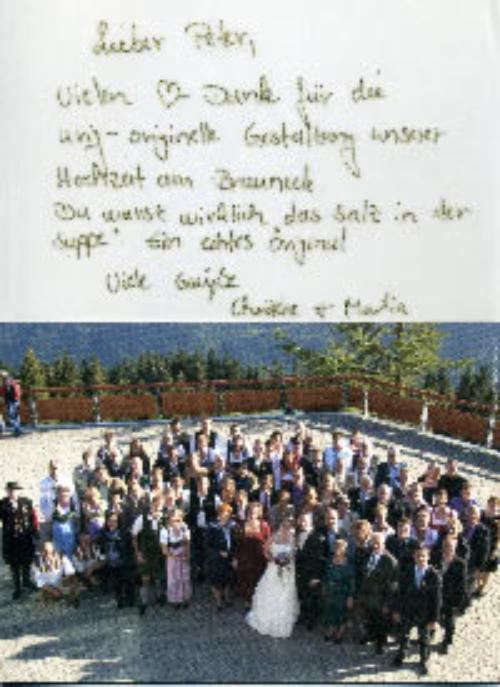 Lieber Peter,
Vielen ♡ Dank für die
urig-originelle Gestaltung unserer
Hochzeit am Brauneck
Du warst wirklich "das Salz in der
Suppe" Ein echtes Original
Viele Grüße
Christine + Martin